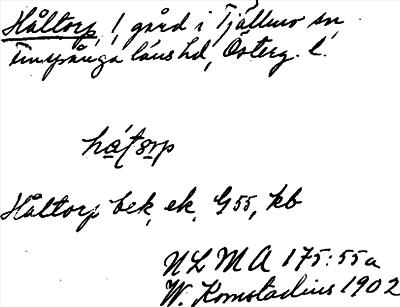 Håltorp, 1 gård i Tjällmo sn,
Finspånga läns hd, Österg. l.
hátorp
Håltorp bek, ek, G55, kb
NLMA 175:55a
W. Komstadius 1902